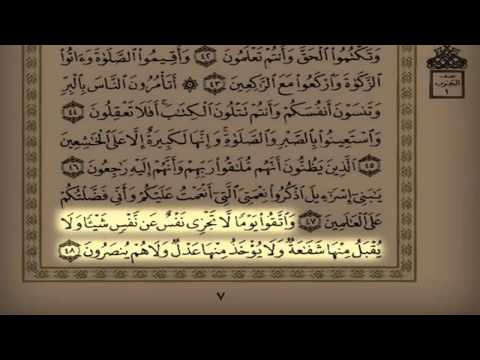 وَتَكْتُمُوا۟ ٱلْحَقَّ وَأَنتُمْ تَعْلَمُونَ ٤٢ وَأَقِيمُوا۟ ٱلصَّلَوٰةَ وَءَاتُوا۟
ٱلزَّكَوٰةَ وَٱرْكَعُوا۟ مَعَ ٱلرَّٰكِعِينَ ٤٣ ۞ أَتَأْمُرُونَ ٱلنَّاسَ بِٱلْبِرِّ
وَتَنسَوْنَ أَنفُسَكُمْ وَأَنتُمْ تَتْلُونَ ٱلْكِتَٰبَ ۚ أَفَلَا تَعْقِلُونَ ٤٤
وَٱسْتَعِينُوا۟ بِٱلصَّبْرِ وَٱلصَّلَوٰةِ ۚ وَإِنَّهَا لَكَبِيرَةٌ إِلَّا عَلَى ٱلْخَٰشِعِينَ
٤٥ ٱلَّذِينَ يَظُنُّونَ أَنَّهُم مُّلَٰقُوا۟ رَبِّهِمْ وَأَنَّهُمْ إِلَيْهِ رَٰجِعُونَ ٤٦
يَٰبَنِىٓ إِسْرَٰٓءِيلَ ٱذْكُرُوا۟ نِعْمَتِىَ ٱلَّتِىٓ أَنْعَمْتُ عَلَيْكُمْ وَأَنِّى فَضَّلْتُكُمْ
عَلَى ٱلْعَٰلَمِينَ ٤٧ وَٱتَّقُوا۟ يَوْمًا لَّا تَجْزِى نَفْسٌ عَن نَّفْسٍ شَيْـًٔا وَلَا
يُقْبَلُ مِنْهَا شَفَٰعَةٌ وَلَا يُؤْخَذُ مِنْهَا عَدْلٌ وَلَا هُمْ يُنصَرُونَ ٤٨
٧
نصف
الحزب
١